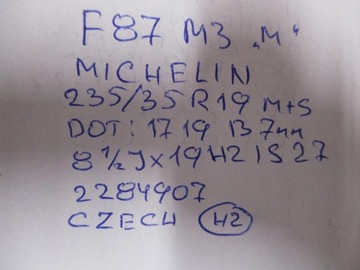 F87 M3 „M"
MICHELIN
235/35 R19 M+S
DOT: 1719 B 7mm
8 ½ J x 19 H2 IS 27
2284907
CZECH H2